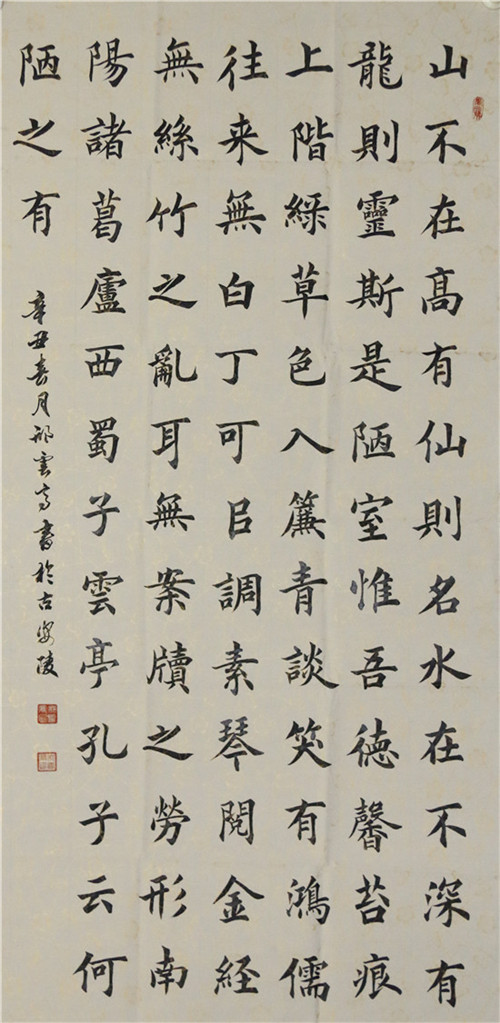 山不在髙有仙則名水在不深有
龍則靈斯是陋室惟吾徳馨苔痕
上階綠草色入簾青談笑有鴻儒
往来無白丁可㠯調素琴閱金経
無絲竹之亂耳無案牘之勞形南
陽諸葛廬西蜀子雲亭孔子云何
陋之有
辛丑春月雲高書於古安陵